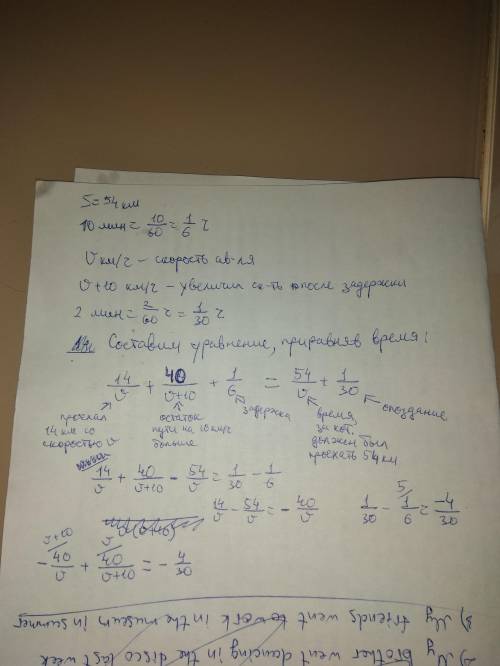 S = 54 км
10 мин = 10/60 = 1/6 ч
V км/ч – скорость ав-ля
V+10 км/ч – увеличил ск-ть после задержки
2 мин = 2/60 ч = 1/30 ч
Составим уравнение, приравняв время:
14/V + 40/(V+10) + 1/6 = 54/V + 1/30
проехал 14 км со скоростью V
остаток пути на 10 км/ч больше
задержка
время, за кот. должен был проехать 54 км
опоздание
14/V + 40/(V+10) - 54/V = 1/30 - 1/6
14/V - 54/V = - 40/V
1/30 - 5/ 1/6 = -4/30
V+10/ V/
- 40/V + 40/(V+10) = - 4/30
3) My friends went to work in the museum in summer
2) My brother went dancing in the disco last week